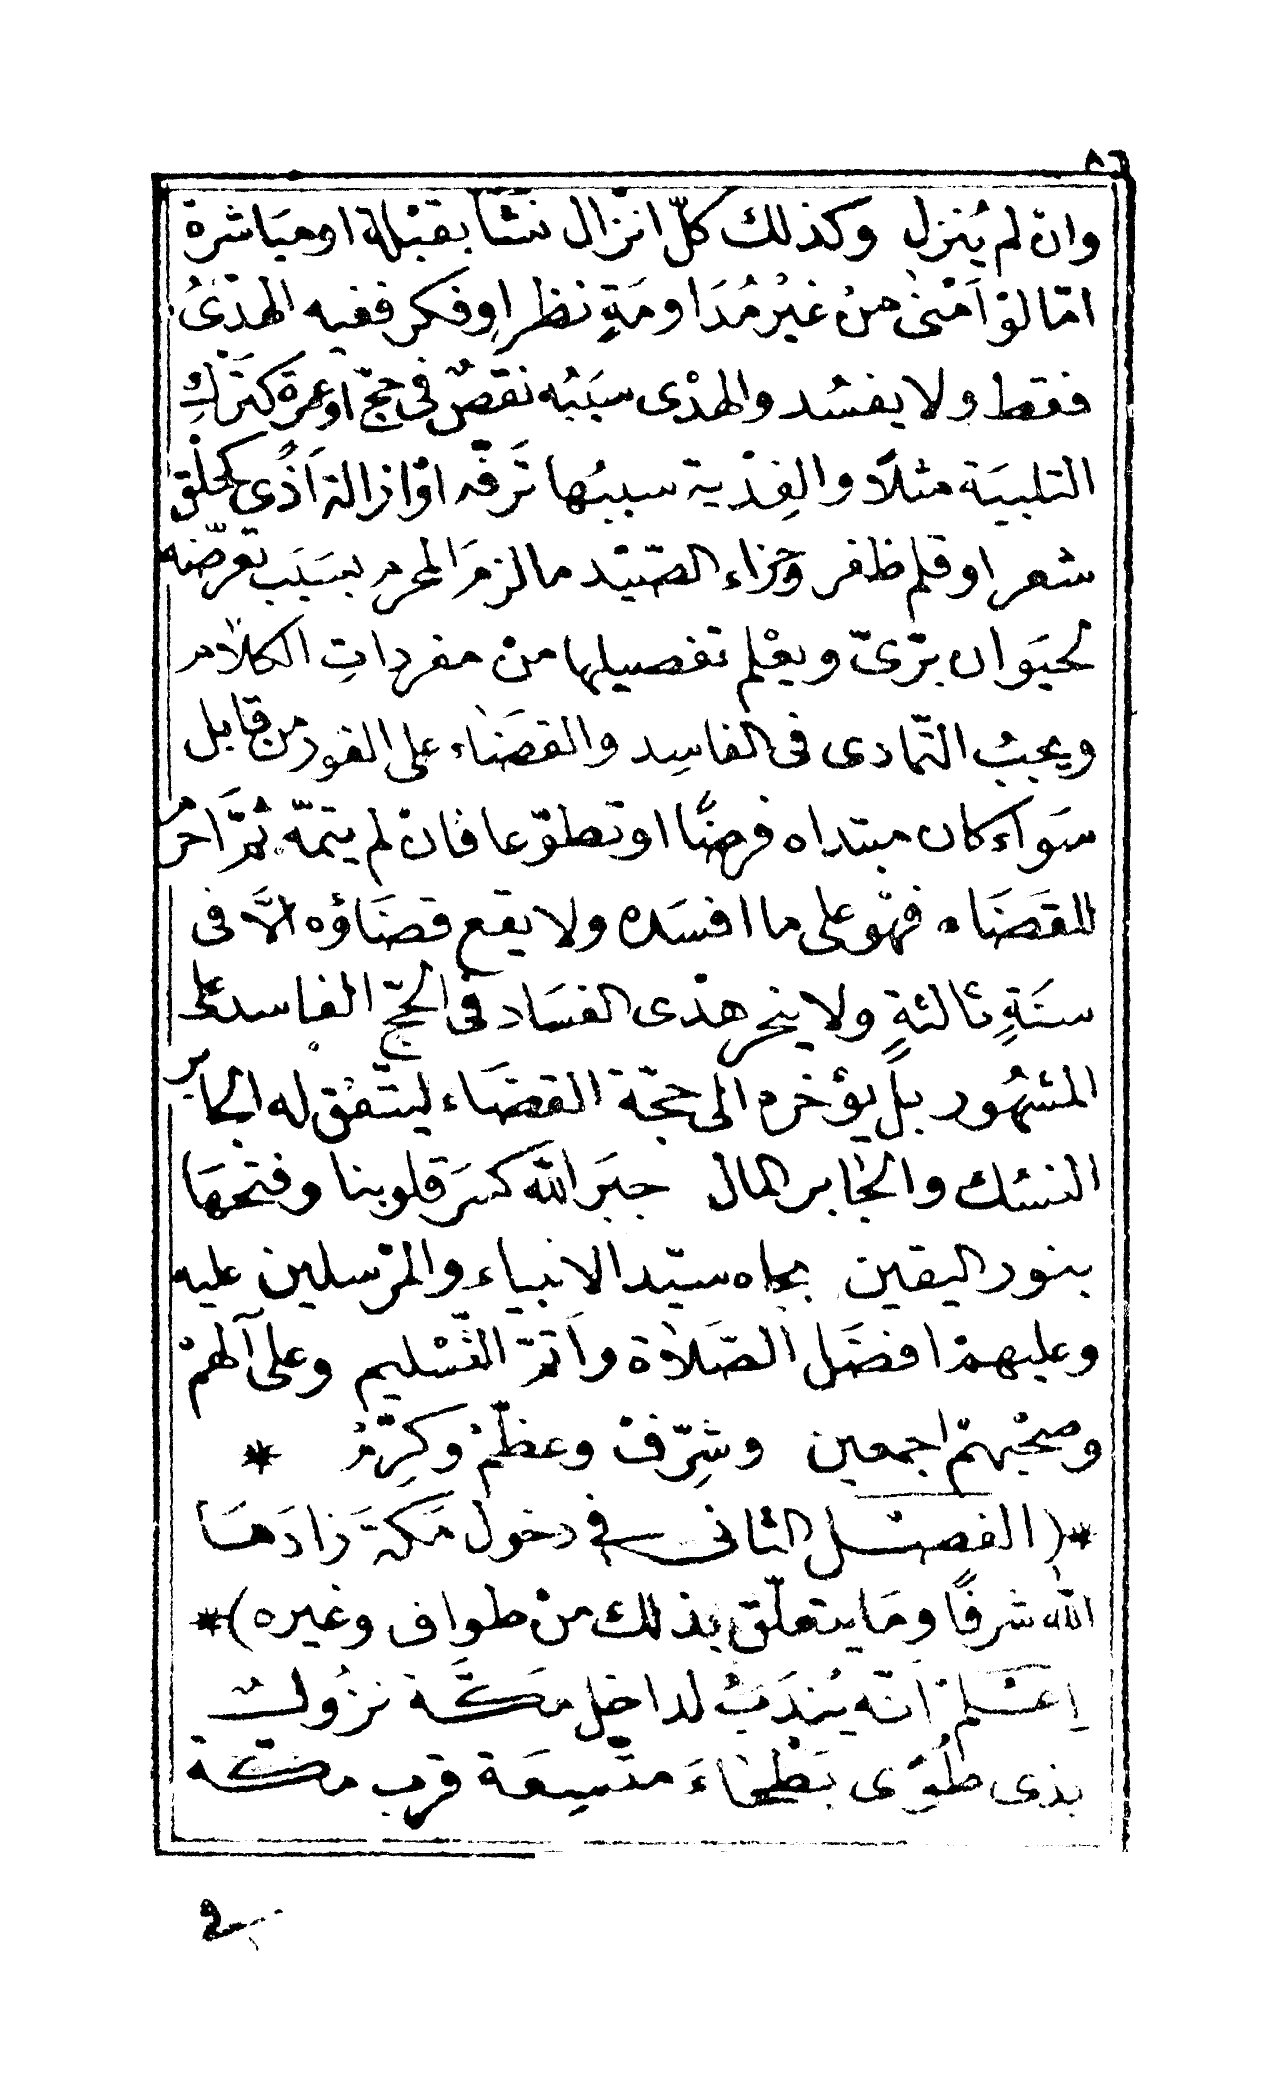 ٨٦
وان لم يُنزل وكذلك كلّ انزال نشأ بقبْلة او مبَاشرة
امّا لوْ اَمْنىٰ منْ غيْر مُدَاومَةٍ نظر او فكر ففيه الهدْىُ
فقط ولا يفسُد والهدْى سبَبُه نقصٌ فى حجّ او عمرة كتركِ
التلبيَة مثلاً والفِدْية سببُها تَرفّه اوْ ازالة اَذًى كحلْق
شعر او قلم ظفر وجزاء الصّيْد ما لزمَ المحرم بسَبَب تعرّضه
لحيَوان برّىّ ويعْلم تفصيلها منْ مفرداتِ الكلام
ويجبُ التّمادى فى الفاسِد والقضَاء على الفور من قابل
سَوآء كان مبتداه فرضًا او تطوّعا فانْ لم يتمّه ثمَّ اَحرمَ
للقضَاء فهْو على ما افسَده ولا يقع قضَاؤه الاَّ فى
سنَةٍ ثالثةٍ ولا ينحر هدْى الفسَاد فى الحجّ الفاسد على
المشهُور بلْ يؤخره الى حجّة القضَاء ليتّفق له الجابر
النسُك والجابر المال جبَر اللّه كسَر قلوبنا وفتحهَا
بنور اليقين بجاه سيّد الانبياء والمرْسلين عليه
وعليهمْ افضَل الصّلاة واَتمّ التّسْليم وعلى آلهمْ
وصحْبهمْ اجمعين وشرِّفْ وعظّمْ وكرِّمْ *
*( الفصْل الثانى فى دخول مَكّةَ زادَهَا
اللّه شرفًا ومَا يتعلّق بذلك منْ طواف وغيره )*
اِعْلمْ انّه يُندَبُ لداخل مَكَّة نزُولٌ
بذى طُوًى بَطْحَاءَ متّسِعَة قرب مكّة